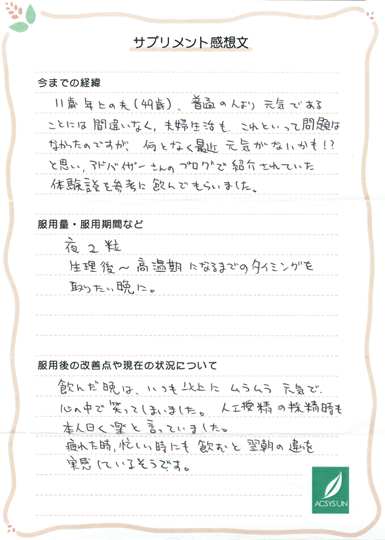 サプリメント感想文
今までの経緯
11歳年上の夫(49歳)、普通の人より元気である
ことには間違いなく、夫婦生活も、これといって問題は
なかったのですが、何となく最近元気がないかも!?
と思い、アドバイザーさんのブログで紹介されていた
体験談を参考に飲んでもらいました。
服用量・服用期間など
夜2粒
生理後〜高温期になるまでのタイミングを
取りたい晩に。
服用後の改善点や現在の状況について
飲んだ晩は、いつも以上にムラムラ元気で、
心の中で笑ってしまいました。人工授精の採精時も
本人曰く楽と言っていました。
疲れた時、忙しい時にも飲むと翌朝の違いを
実感しているそうです。
ACSYSUN